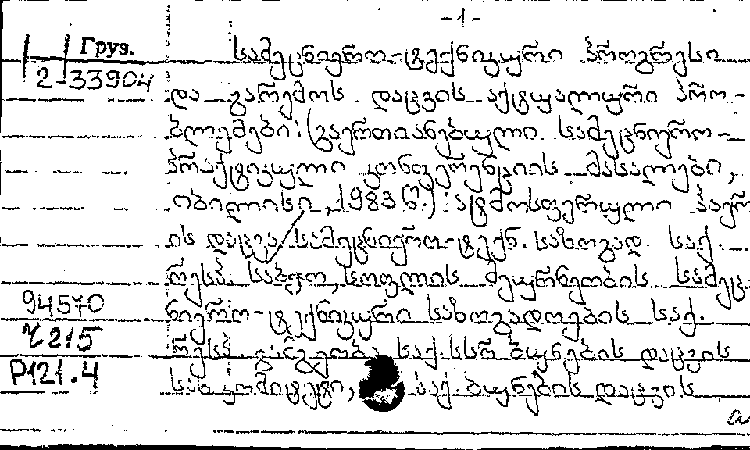 -1-
Груз.
2-33904
სამეცნიერო-ტექნიკური პროგრესი
და გარემოს დაცვის აქტუალური პრო-
ბლემები: (გაერთიანებული სამეცნიერო-
პრაქტიკული კონფერენციის მასალები,
თბილისი, 1983 წ.) : ატმოსფერული ჰაერ
ის დაცვა / სამეცნიერო-ტექნ. საზოგად. საქ.
რესპ. საბჭო, სოფლის მეურნეობის სამეც-
ნიერო-ტექნიკური საზოგადოების საქ.
რესპ. გამგეობა, საქ.სსრ ბუნების დაცვის
სახ. კომიტეტი, საქ. ბუნების დაცვის
94570
215
P121.4